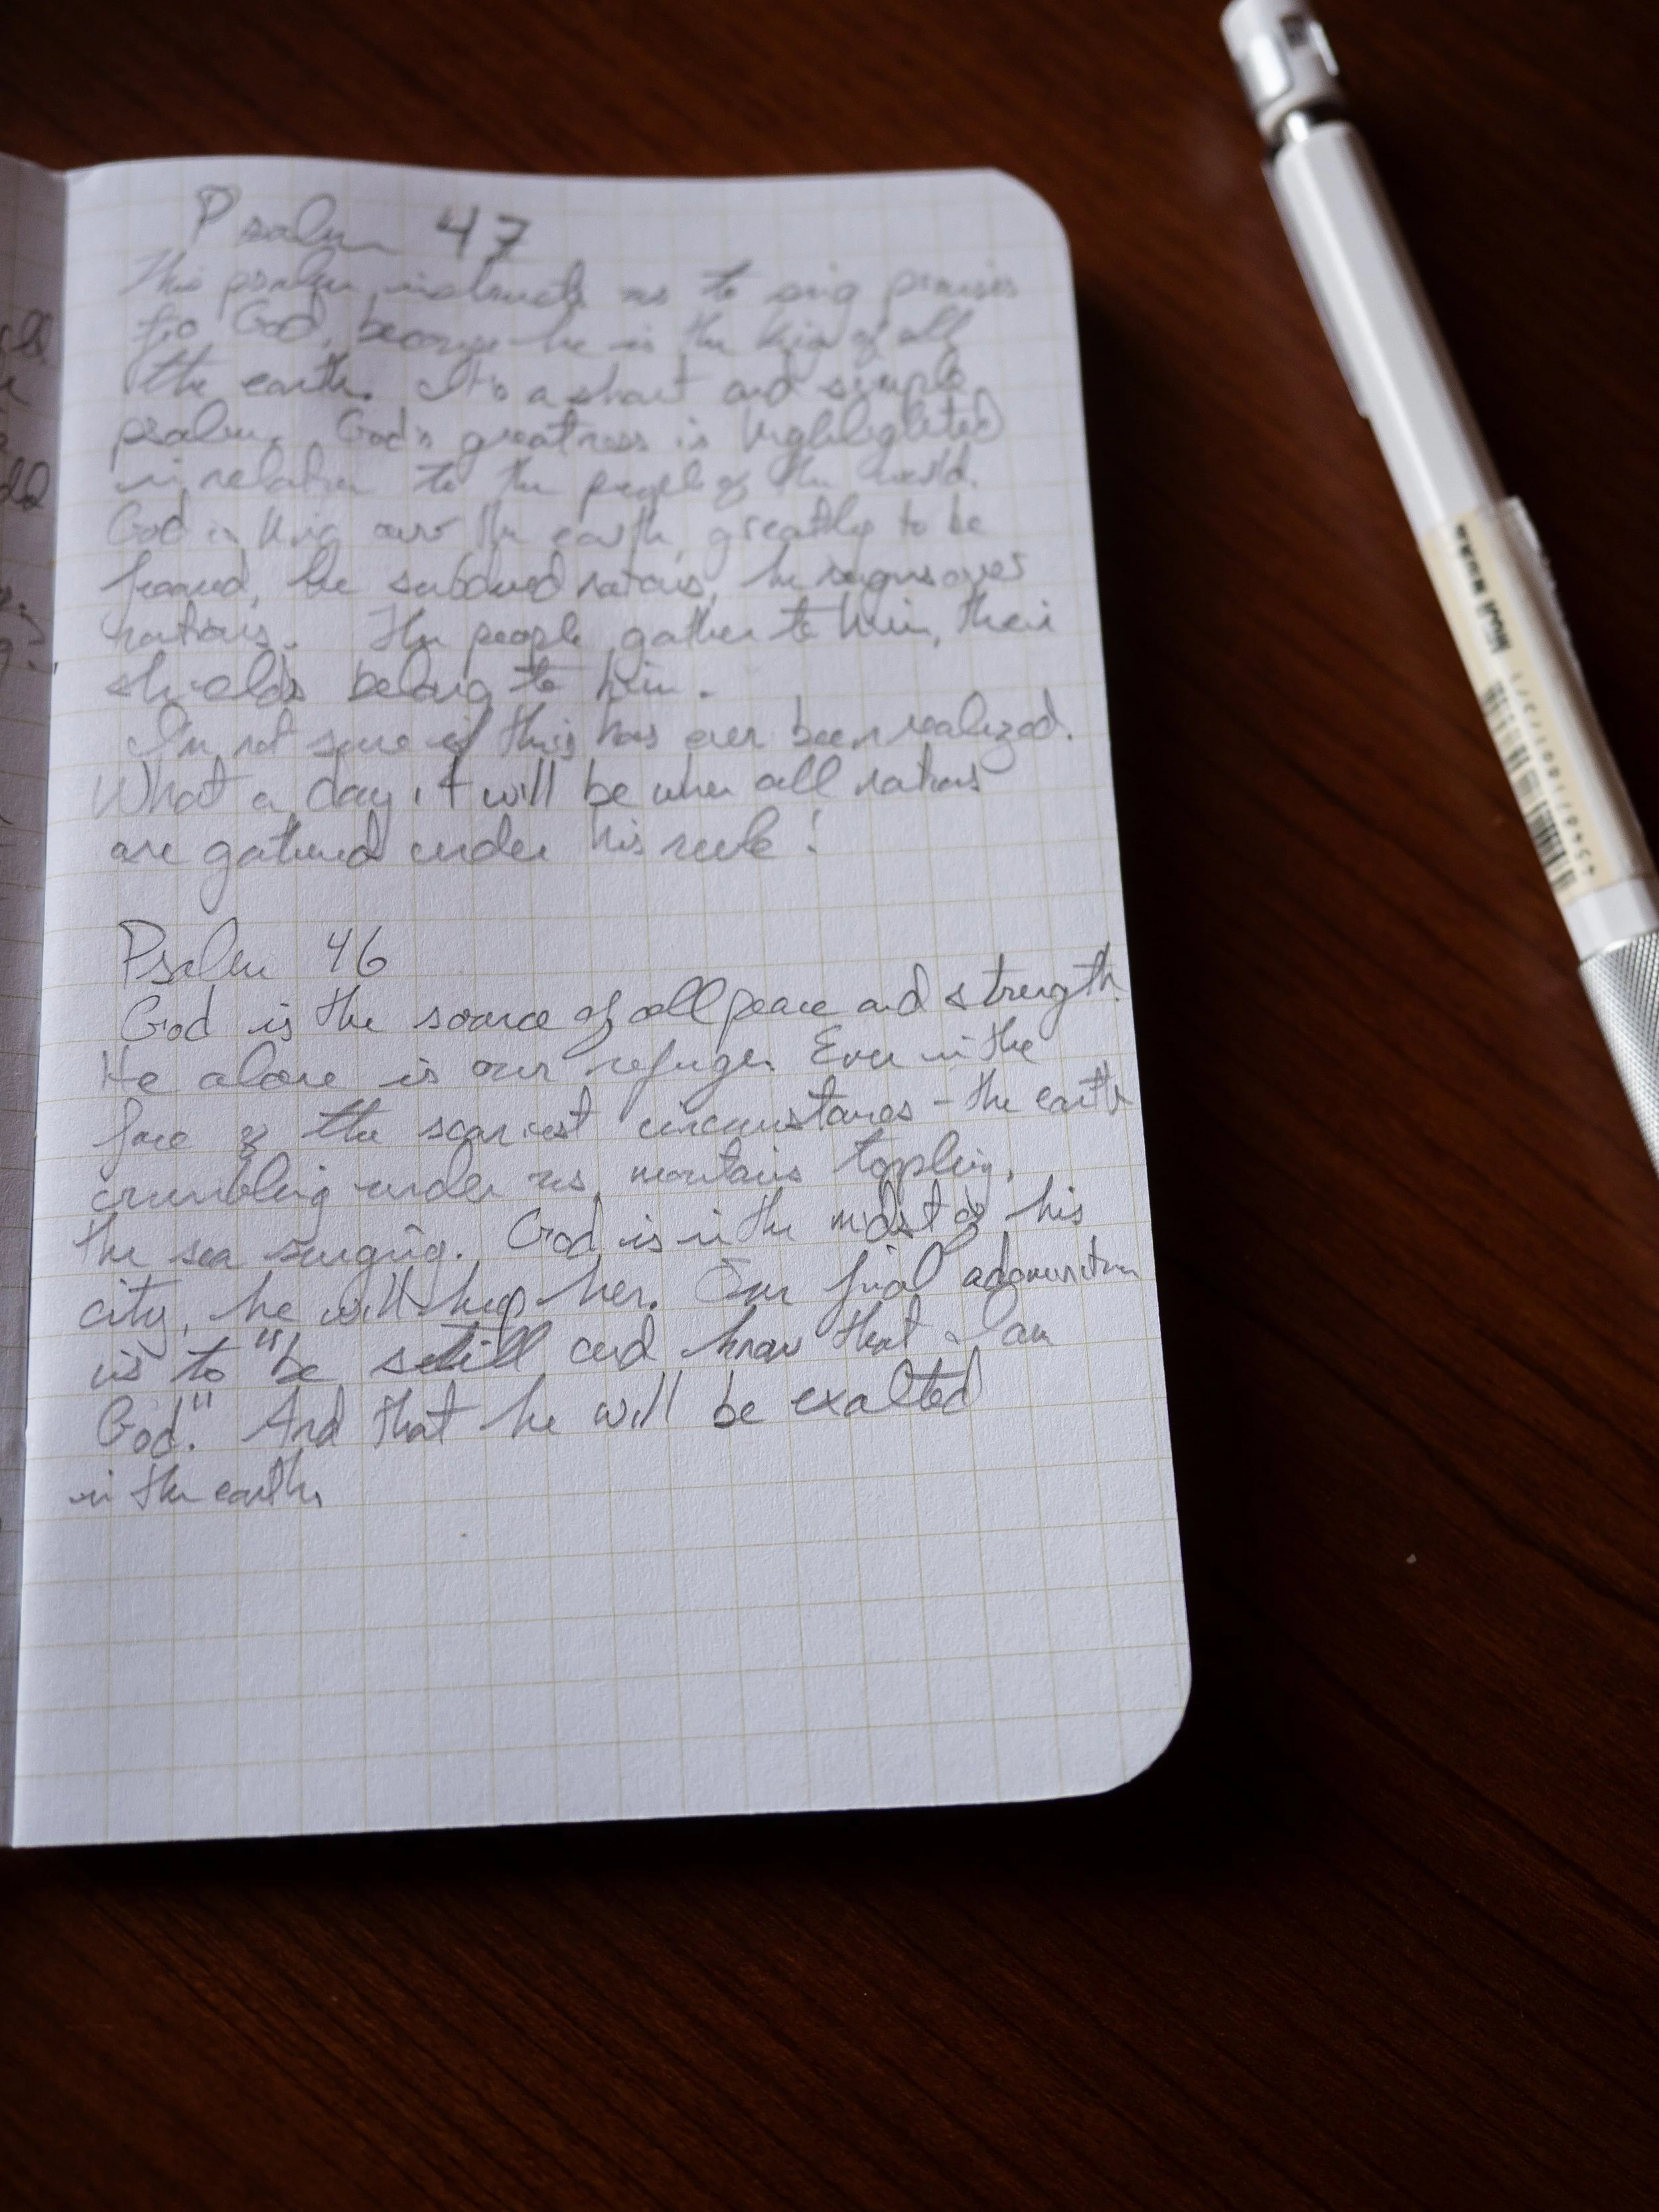 Psalm 47
This psalm instructs us to sing praises
to God, because he is the king of all
the earth. It's a short and simple
psalm. God's greatness is highlighted
in relation to the people of the world.
God is king over the earth, greatly to be
feared, he subdued nations, he reigns over
nations. The people gather to him, their
shields belong to him.
I'm not sure if this has ever been realized.
What a day it will be when all nations
are gathered under his rule!
Psalm 46
God is the source of all peace and strength.
He alone is our refuge. Even in the
face of the scariest circumstances - the earth
crumbling under us, mountains toppling,
the sea surging. God is in the midst of his
city, he will help her. Our final admonition
is to "be still and know that I am
God." And that he will be exalted
in the earth.